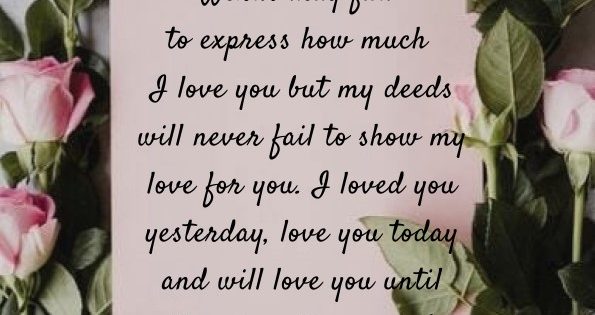 to express how much
I love you but my deeds
will never fail to show my
love for you. I loved you
yesterday, love you today
and will love you until